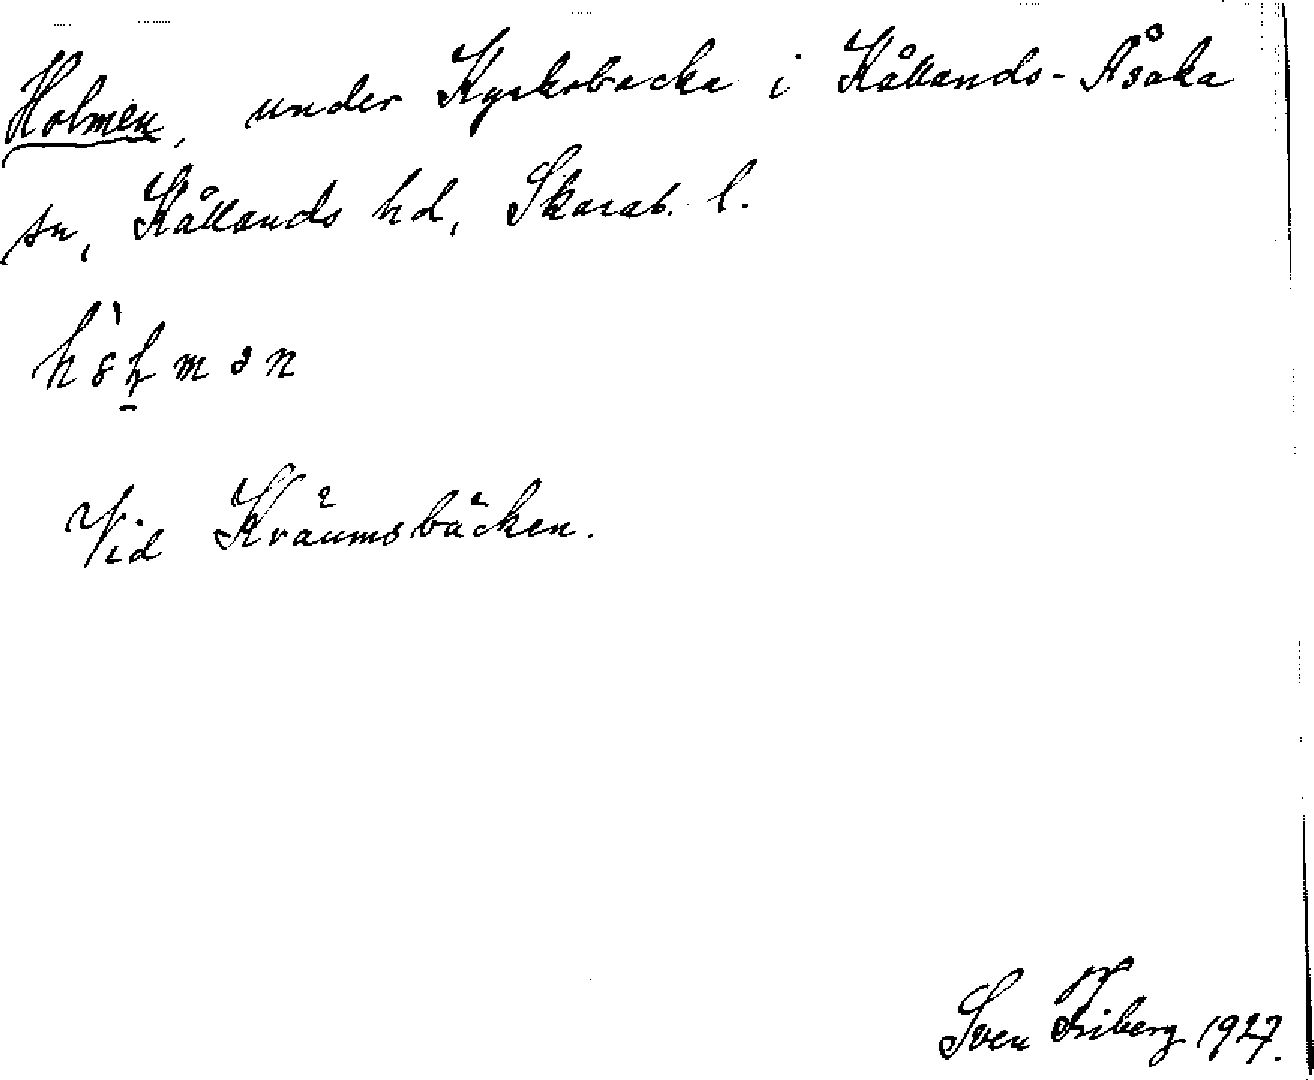 Holmen, under Kyrkobacka i Kållands-Åsaka
sn, Kållands hd, Skarab. l.
Vid Kräumsbäcken.
Sven Friberg 1927.